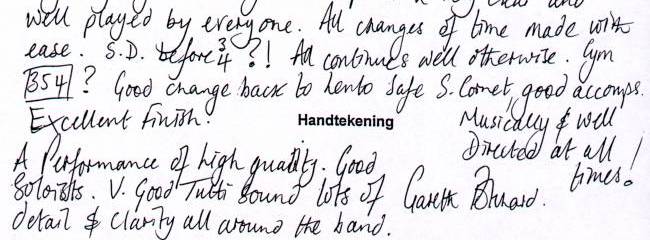 well played by everyone. All changes of time made with
ease. S.D. before 3/4 ?! All continues well otherwise. Cym
B54 ? Good change back to Lento safe S. Cornet, good accomps.
Excellent finish!
Handtekening
Musically & well
Directed at all
times!
A Performance of high quality. Good
Soloists. V. Good Tutti Sound lots of
detail & clarity all around the band.
Gareth